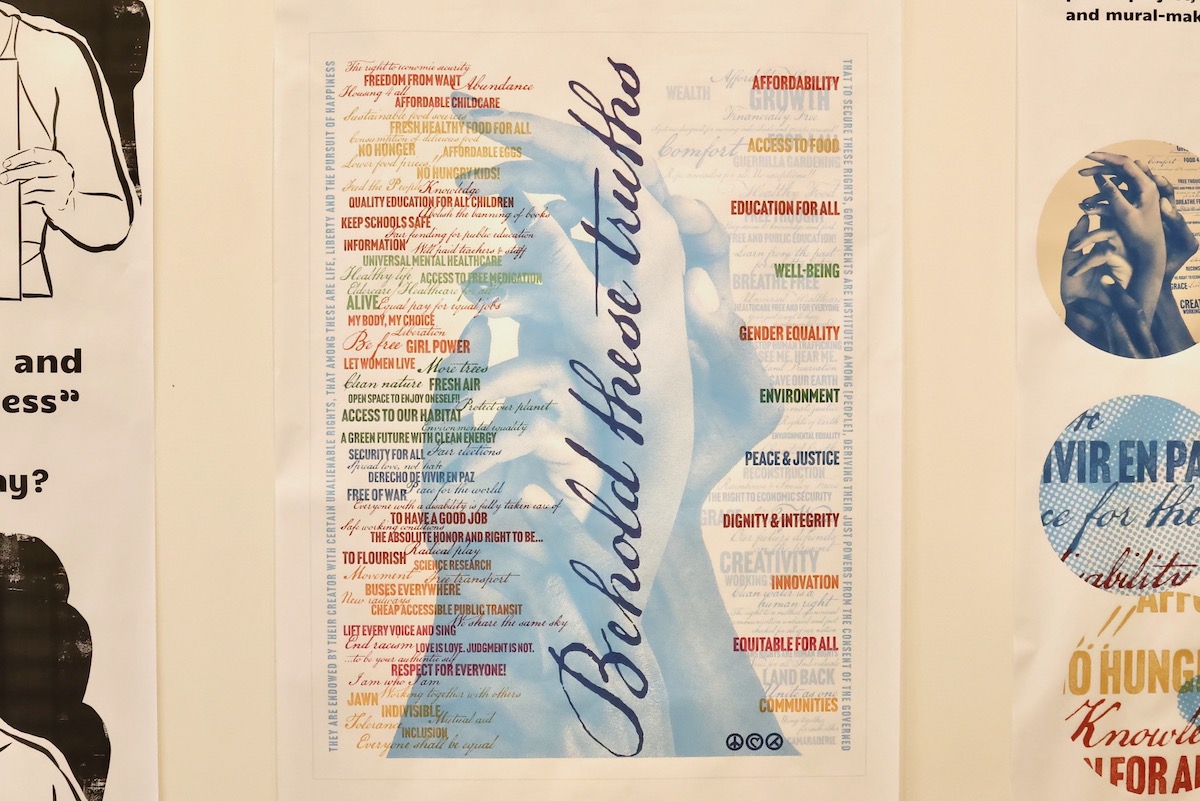 and
ess”
ay?
THEY ARE ENDOWED BY THEIR CREATOR WITH CERTAIN UNALIENABLE RIGHTS, THAT AMONG THESE ARE LIFE, LIBERTY AND THE PURSUIT OF HAPPINESS
The right to economic security
FREEDOM FROM WANT Abundance
Housing 4 all
AFFORDABLE CHILDCARE
Sustainable food sources
FRESH HEALTHY FOOD FOR ALL
Consumption of delicious food
NO HUNGER
AFFORDABLE EGGS
Lower food prices
NO HUNGRY KIDS!
Feed the People Knowledge
QUALITY EDUCATION FOR ALL CHILDREN
Abolish the banning of books
KEEP SCHOOLS SAFE
Fair funding for public education
INFORMATION Well paid teachers & staff
UNIVERSAL MENTAL HEALTHCARE
Healthy life ACCESS TO FREE MEDICATION
Eldercare Healthcare for all
ALIVE Equal pay for equal jobs
MY BODY, MY CHOICE
Liberation
Be free GIRL POWER
LET WOMEN LIVE More trees
Clean nature FRESH AIR
OPEN SPACE TO ENJOY ONESELF!!
Protect our planet
ACCESS TO OUR HABITAT
Environmental equality
A GREEN FUTURE WITH CLEAN ENERGY
SECURITY FOR ALL Fair elections
Spread love, not hate
DERECHO DE VIVIR EN PAZ
FREE OF WAR Peace for the world
Everyone with a disability is fully taken care of
TO HAVE A GOOD JOB
Safe working conditions
THE ABSOLUTE HONOR AND RIGHT TO BE...
TO FLOURISH Radical play
SCIENCE RESEARCH
Movement Free transport
BUSES EVERYWHERE
New railways
CHEAP ACCESSIBLE PUBLIC TRANSIT
We share the same sky
LIFT EVERY VOICE AND SING
End racism LOVE IS LOVE. JUDGMENT IS NOT.
...to be your authentic self
RESPECT FOR EVERYONE!
I am who I am
JAWN Working together with others
INDIVISIBLE
Tolerance Mutual aid
INCLUSION
Everyone shall be equal
Behold these truths
AFFORDABILITY
WEALTH
GROWTH
Financially Free
FOOD 4 ALL
Comfort ACCESS TO FOOD
GUERRILLA GARDENING
EDUCATION FOR ALL
FREE THOUGHT
FREE AND PUBLIC EDUCATION!
Learn from the past
WELL-BEING
BREATHE FREE
Universal Healthcare
HEALTHCARE FREE AND FOR EVERYONE
GENDER EQUALITY
STOP HUMAN TRAFFICKING
SEE ME, HEAR ME.
Land Preservation
SAVE OUR EARTH
ENVIRONMENT
ENVIRONMENTAL EQUALITY
PEACE & JUSTICE
RECONSTRUCTION
THE RIGHT TO ECONOMIC SECURITY
GRACE
DIGNITY & INTEGRITY
CREATIVITY
WORKING INNOVATION
Clean water is a
human right
EQUITABLE FOR ALL
LAND BACK
Unite as one
COMMUNITIES
CAMARADERIE
THAT TO SECURE THESE RIGHTS, GOVERNMENTS ARE INSTITUTED AMONG [PEOPLE], DERIVING THEIR JUST POWERS FROM THE CONSENT OF THE GOVERNED
and mural-mak
Comfort
GRACE
CREAT
VIVIR EN PA
ce for the
ability
AFFO
O HUNG
Knowle
N FOR AL